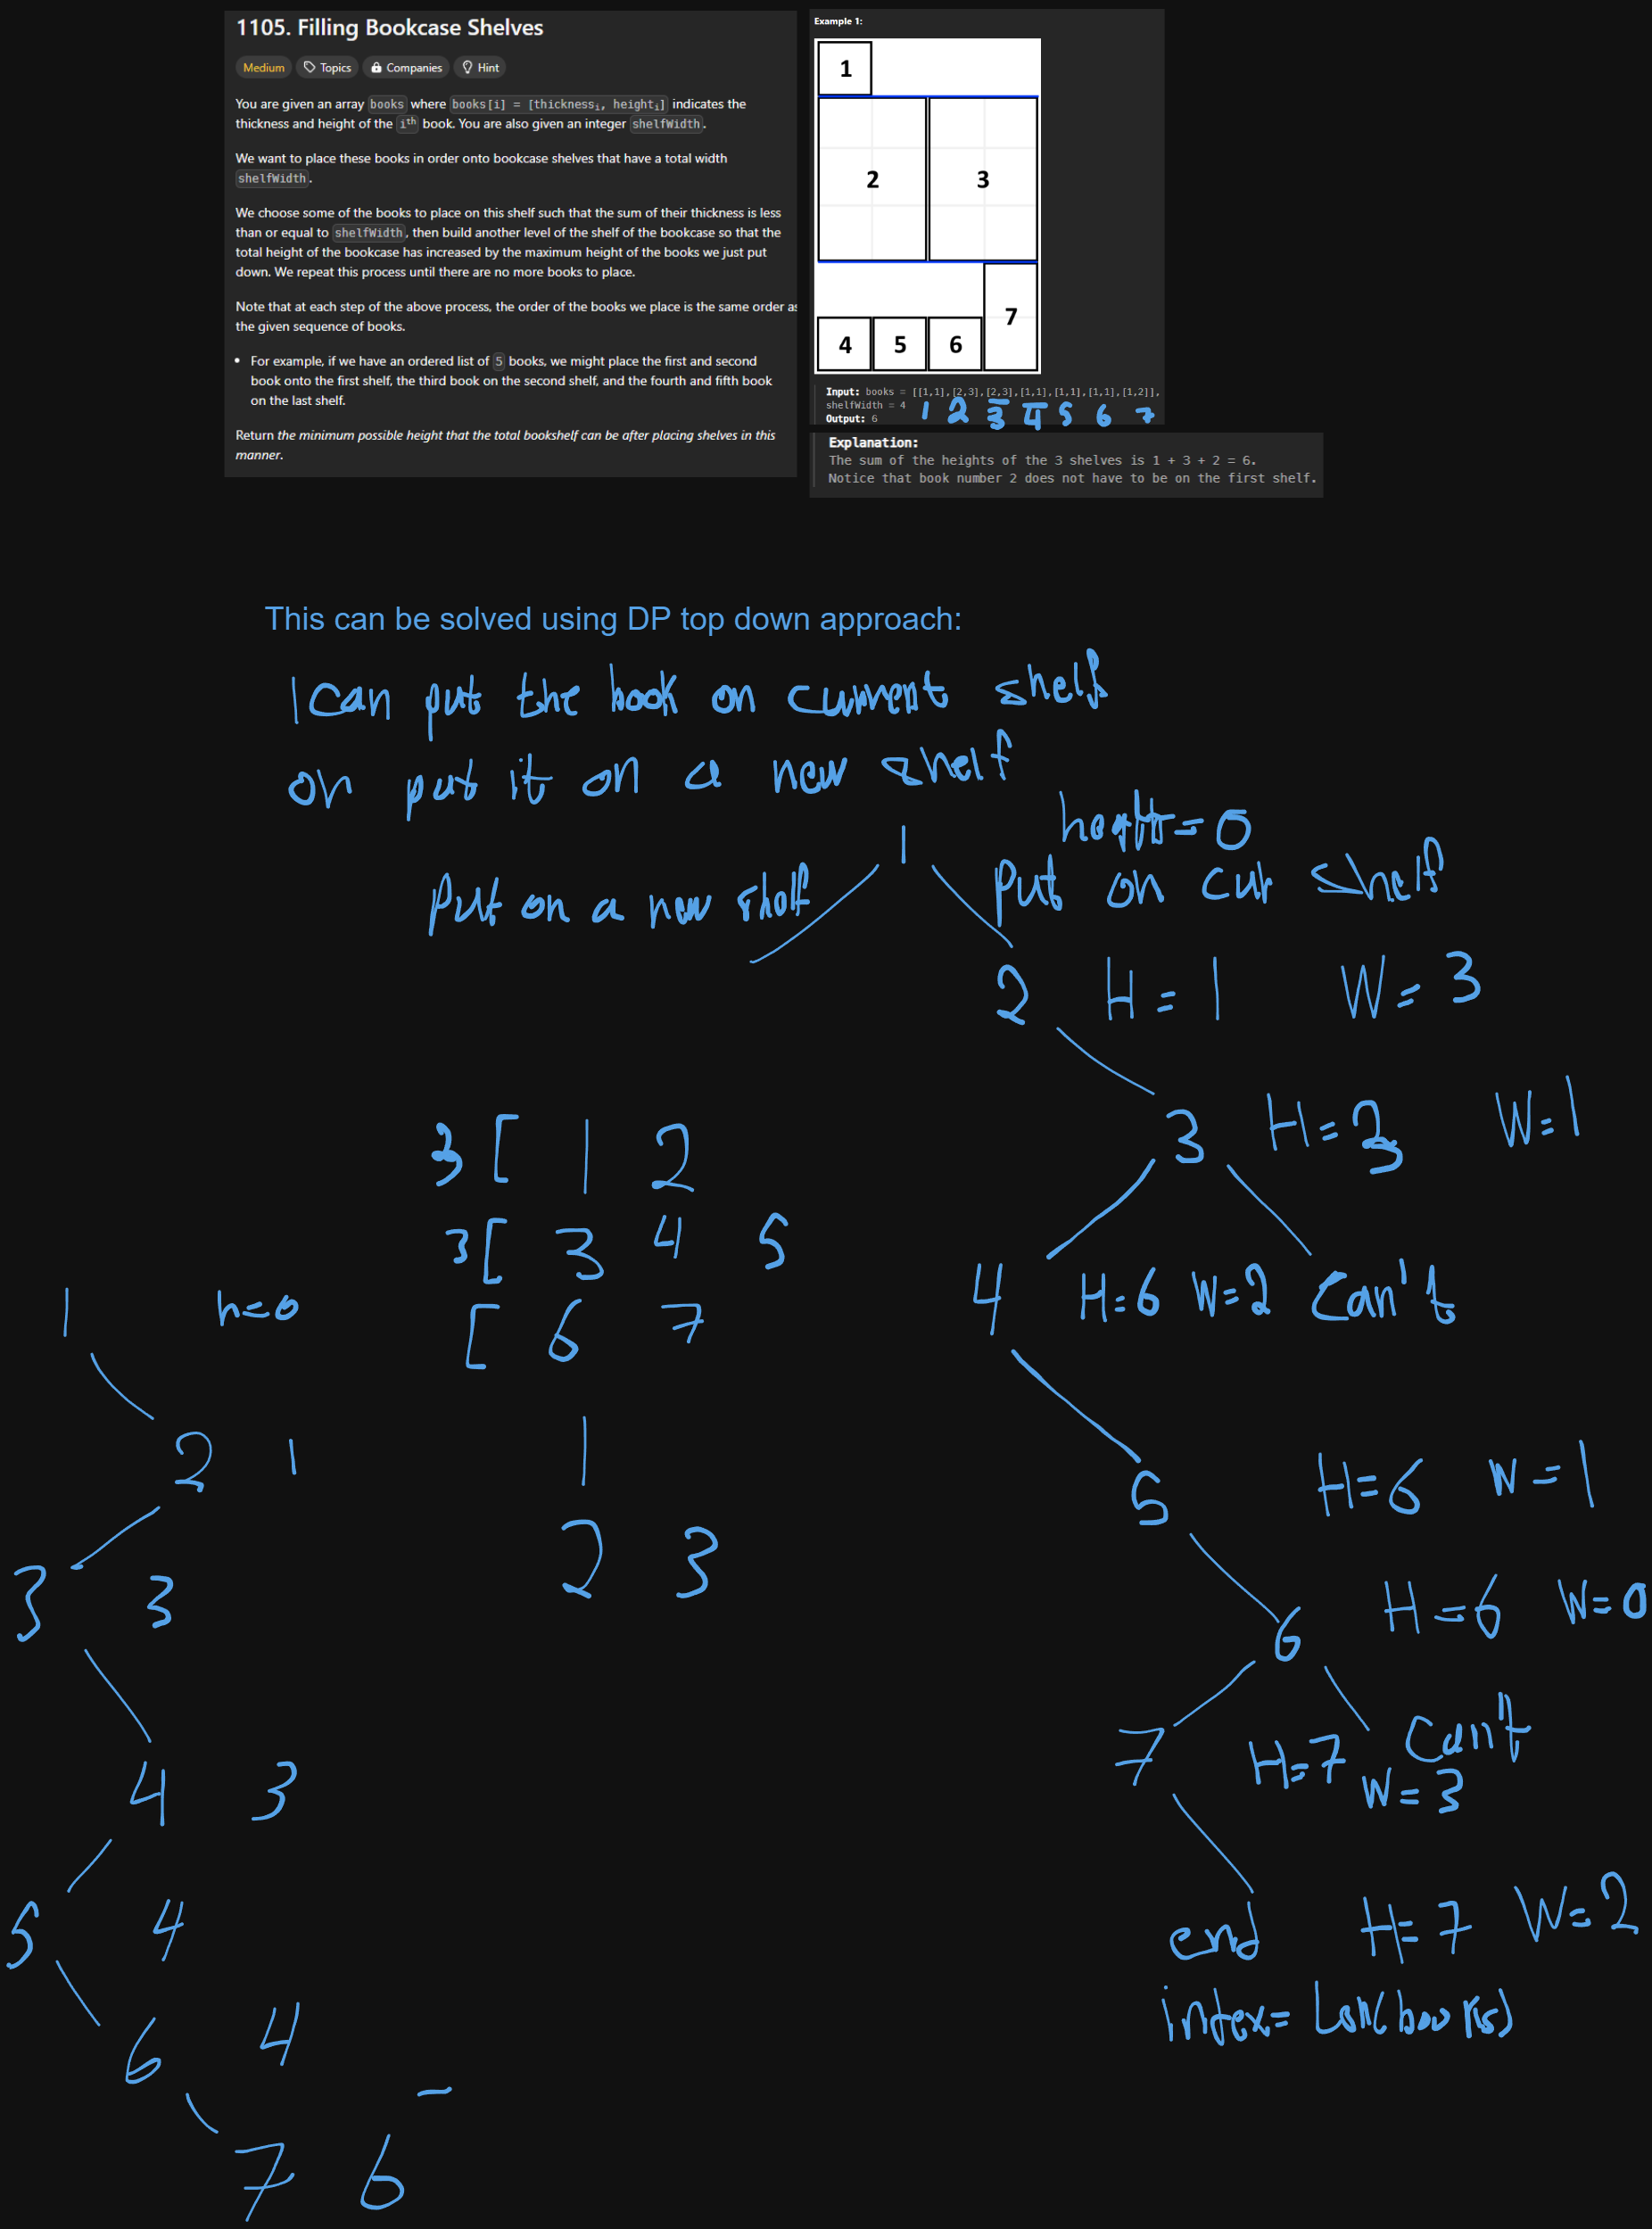 1105. Filling Bookcase Shelves
Medium Topics Companies Hint
You are given an array books where books[i] = [thicknessᵢ, heightᵢ] indicates the
thickness and height of the iᵗʰ book. You are also given an integer shelfWidth.
We want to place these books in order onto bookcase shelves that have a total width
shelfWidth.
We choose some of the books to place on this shelf such that the sum of their thickness is less
than or equal to shelfWidth, then build another level of the shelf of the bookcase so that the
total height of the bookcase has increased by the maximum height of the books we just put
down. We repeat this process until there are no more books to place.
Note that at each step of the above process, the order of the books we place is the same order as
the given sequence of books.
• For example, if we have an ordered list of 5 books, we might place the first and second
book onto the first shelf, the third book on the second shelf, and the fourth and fifth book
on the last shelf.
Return the minimum possible height that the total bookshelf can be after placing shelves in this
manner.
Example 1:
1
2 3
7
4 5 6
Input: books = [[1,1],[2,3],[2,3],[1,1],[1,1],[1,1],[1,2]],
shelfWidth = 4
1 2 3 4 5 6 7
Output: 6
Explanation:
The sum of the heights of the 3 shelves is 1 + 3 + 2 = 6.
Notice that book number 2 does not have to be on the first shelf.
This can be solved using DP top down approach:
I can put the book on current shelf
or put it on a new shelf
height=0
1
Put on a new shelf
Put on cur shelf
2 H=1 W=3
3 H=3 W=1
4 H=6 W=2 Can't
5 H=6 W=1
6 H=6 W=0
7 H=7 W=3 Can't
end H=7 W=2
index= Len(books)
3 [ 1 2
3 [ 3 4 5
[ 6 7
1
2 3
1 h=0
2 1
3 3
4 3
5 4
6 4
7 6